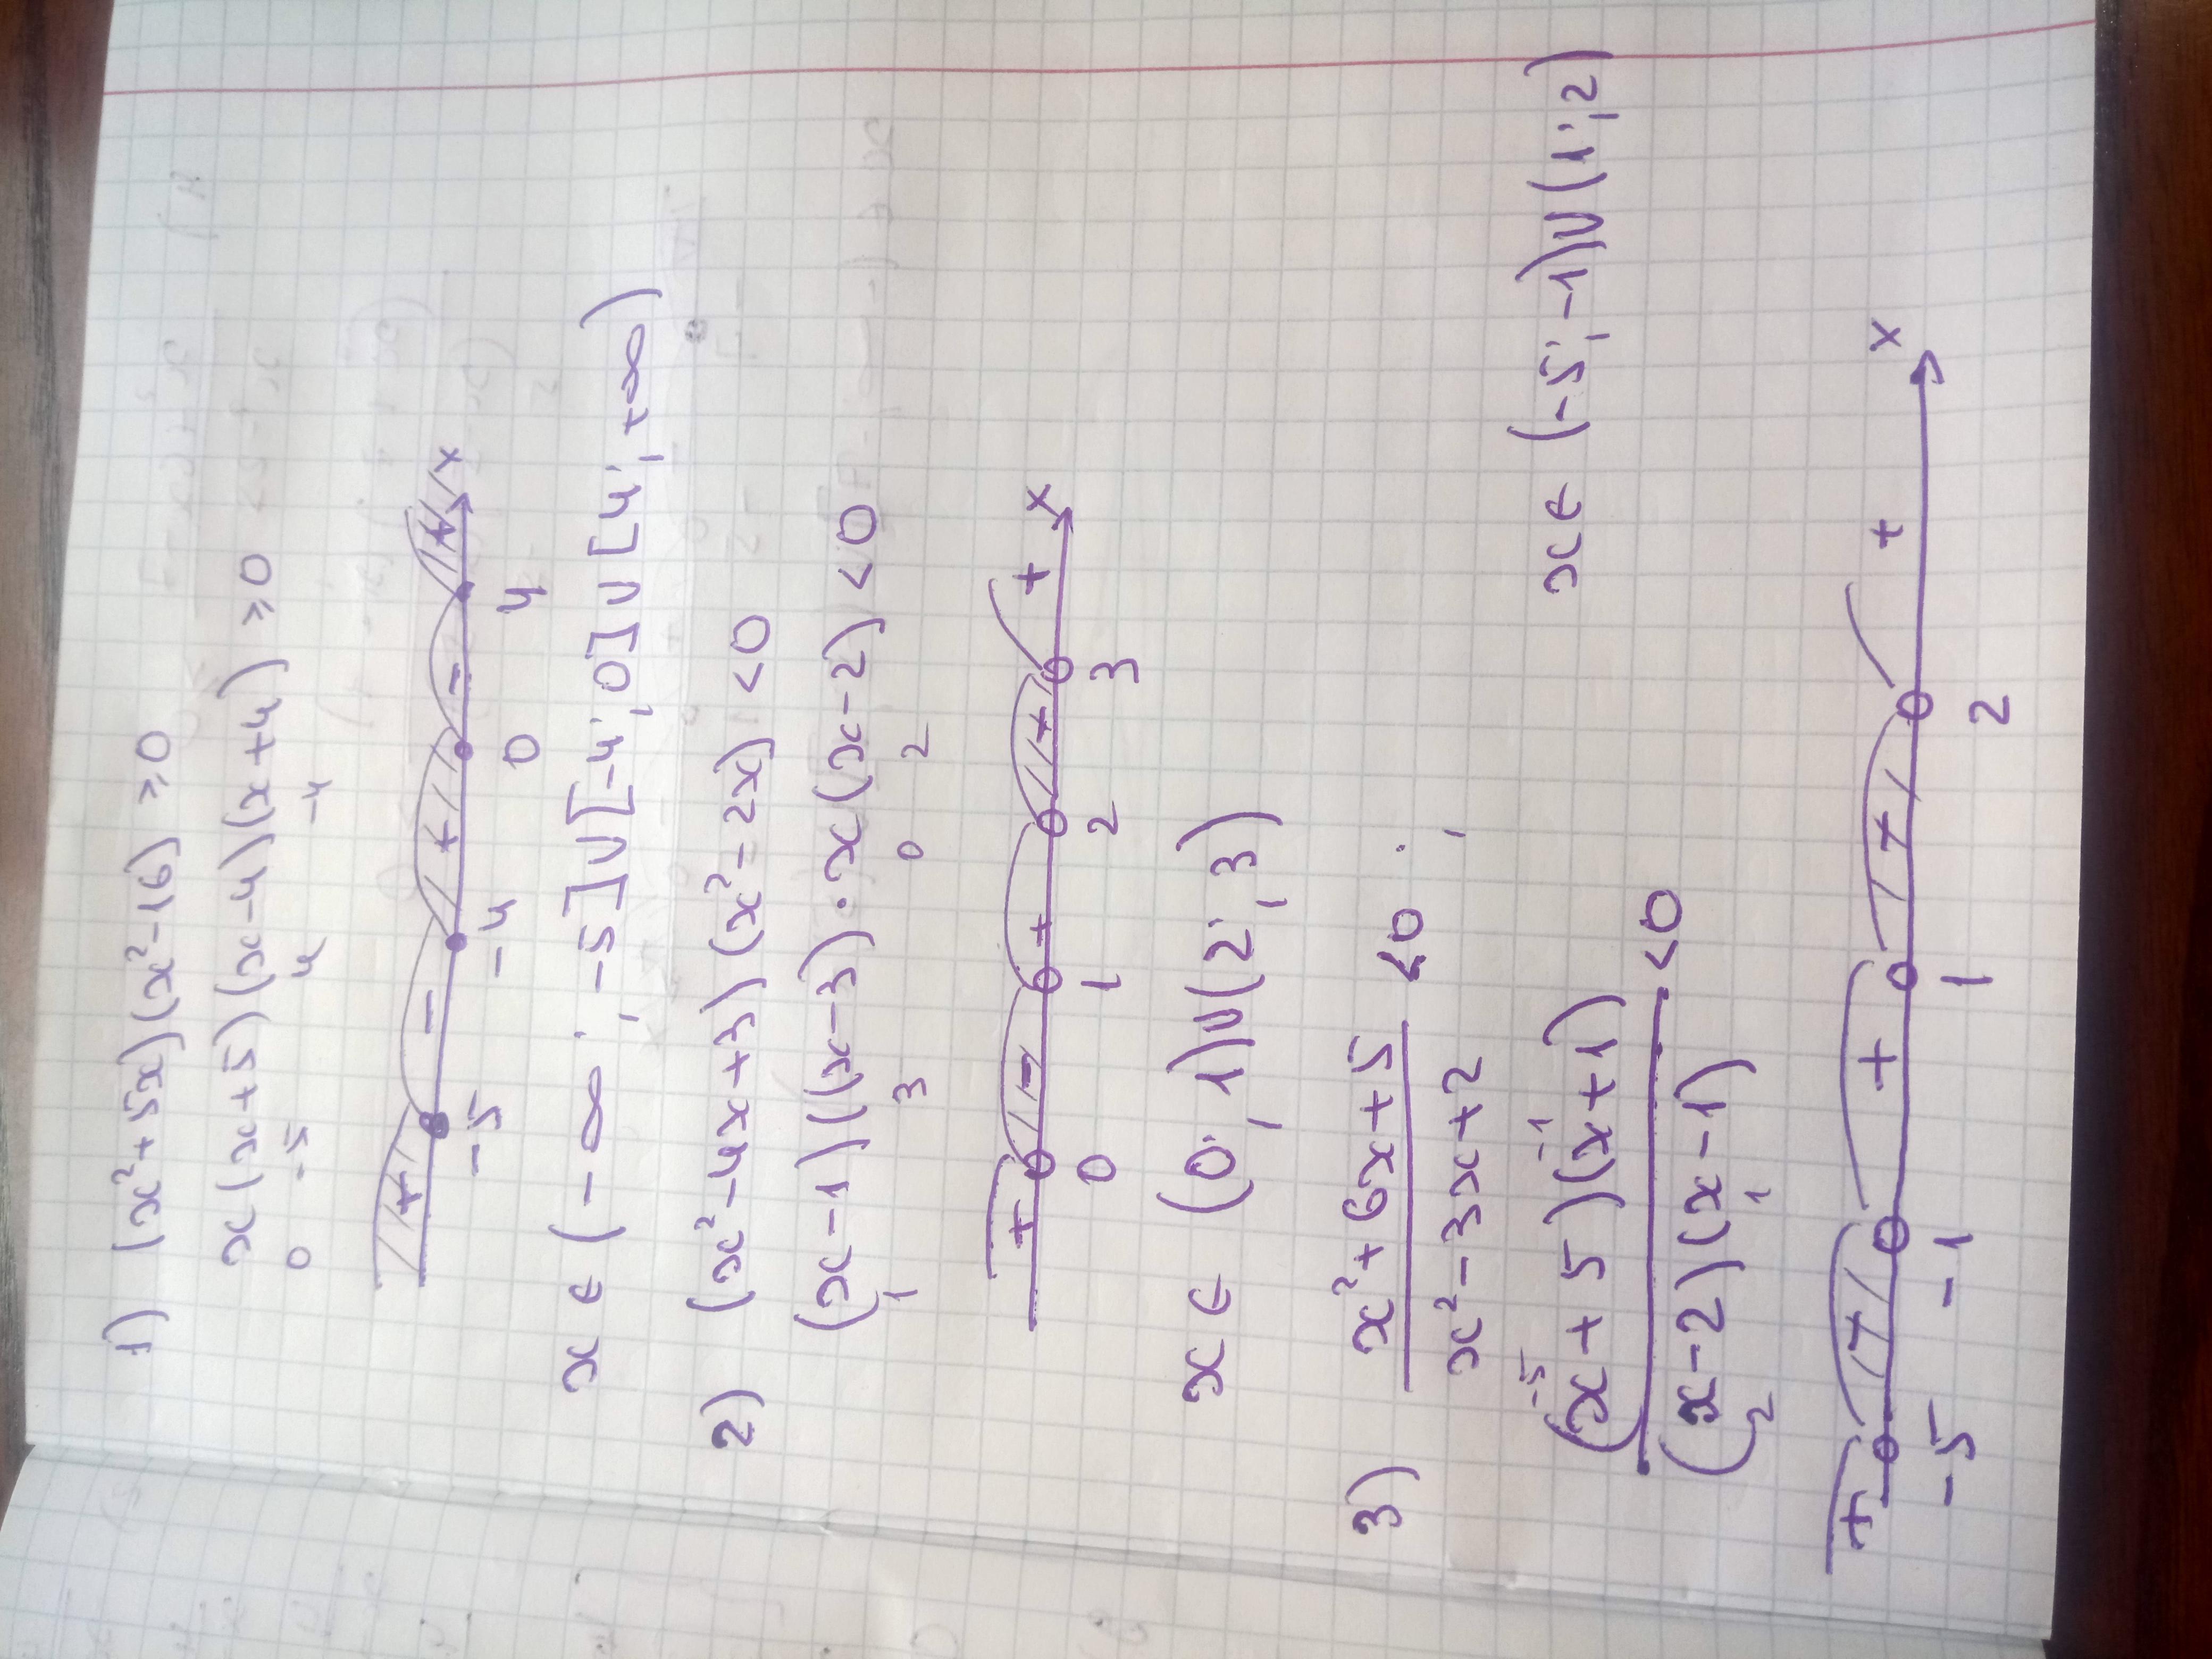 1) (x²+5x)(x²-16)≥0
x(x+5)(x-4)(x+4)≥0
0 -5 4 -4
+ - + - + x
-5 -4 0 4
x ∈ (-∞; -5]∪[-4; 0]∪[4; +∞)
2) (x²-4x+3)(x²-2x)<0
(x-1)(x-3)·x(x-2)<0
1 3 0 2
+ - + + + x
0 1 2 3
x ∈ (0; 1)∪(2; 3)
3) x²+6x+5 <0
x²-3x+2
-5 -1
(x+5)(x+1) <0
(x-2)(x-1)
2 1
x ∈ (-5; -1)∪(1; 2)
+ + + x
-5 -1 1 2